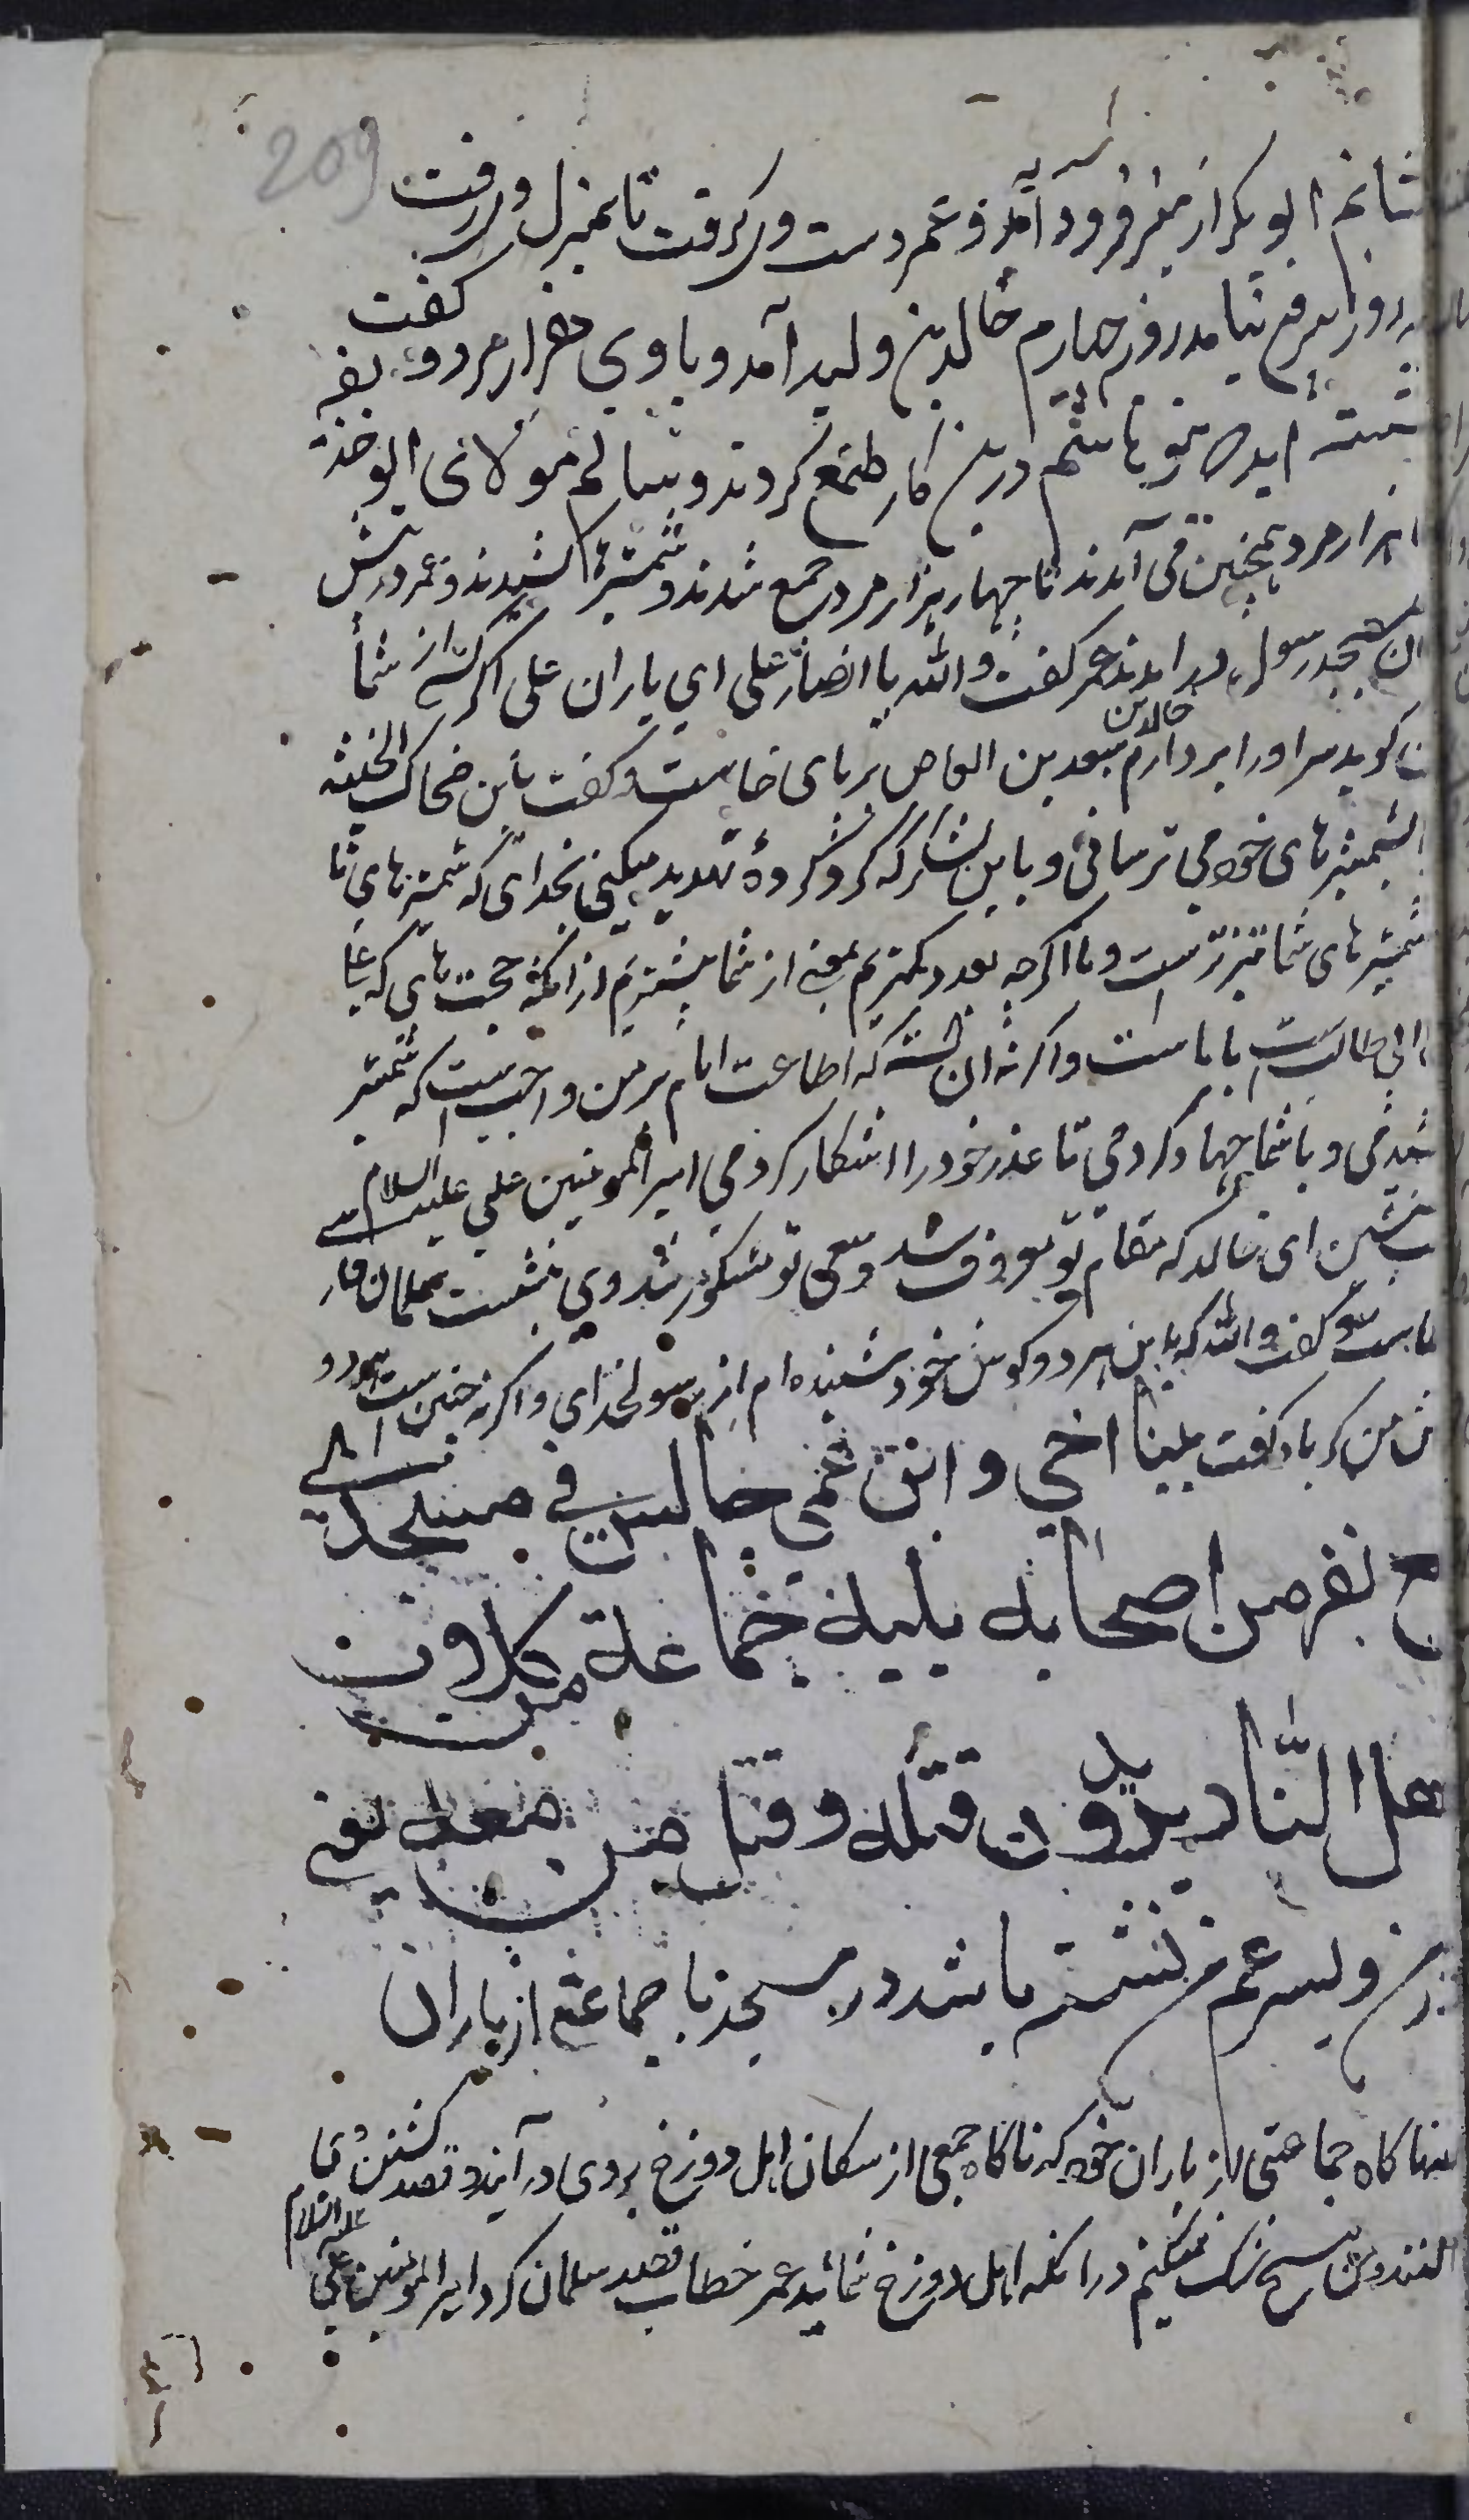 209
ابو بکر از منبر فرود آمد و عمر دست وی گرفت تا بمنزل وی رفت
روز بیرون نیامد روز چهارم خالد بن ولید آمد و با وی هزار مرد و گفت
اید که بنو هاشم درین کار طمع کردند و سالم مولای ابو حذیفه
هزار مرد همچنین می آمدند تا چهار هزار مرد جمع شدند و شمشیرها کشیدند و عمر در پیش
مسجد رسول در امدند عمر گفت والله یا انصار علی ای یاران علی اگر کسی از شما
گوید سر او را بردارم خالد بن سعد بن العاص بر پای خاست و گفت یا بن ضحاک الحبشیه
بشمشیرهای خود می ترسانی و باین لشکر که گرد کرده تهدید میکنی بخدای که شمشیرهای ما
شمشیرهای شما تیزترست و ما اگرچه بعدد کمتریم بمعنی از شما بیشتریم از آنکه حجت های که علی
ابی طالب است با ماست و اگر نه آن است که اطاعت امام بر من واجب است که شمشیر
کشیدمی و با شما جهاد کردمی تا عذر خود را اشکار کردمی امیر المومنین علی علیه السلام
بنشین ای خالد که مقام تو معروف شد و سعی تو مشکور شد وی بنشست سلمان فار
خاست و گفت والله که باین هر دو گوش خود شنیده ام از رسول خدای و اگر نه چنین است هر دو
من کر باد گفت بینا اخی و ابن عمی جالس فی مسجدی
مع نفر من اصحابه یلیه جماعة من کلاب
اهل النار یریدون قتله و قتل من معه یعنی
و پسر عم من نشسته باشد در مسجد با جماعتی از یاران
جماعتی از یاران خود که ناگاه جمعی از سگان اهل دوزخ بروی در آیند و قصد کشتن وی با
کنند و من هیچ شک نمیکنم در آنکه اهل دوزخ شمائید عمر خطاب قصد سلمان کرد امیر المومنین علی علیه السلام